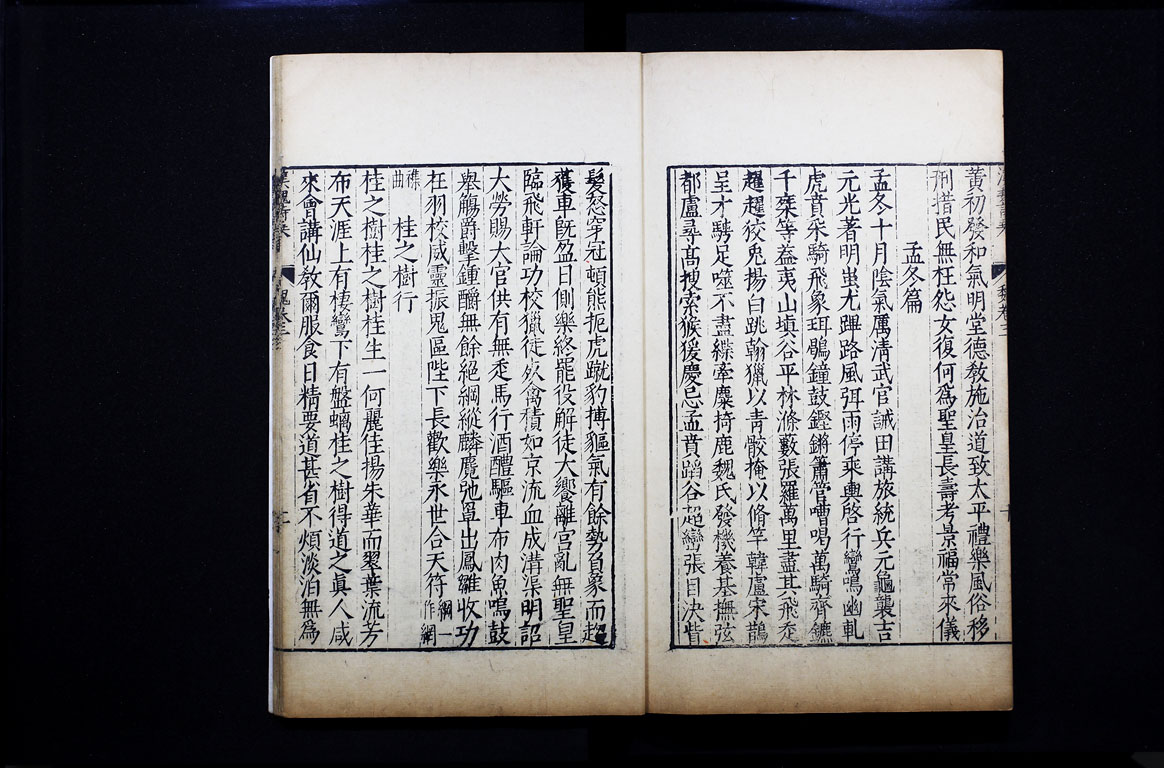 黄初發和氣明堂德教施治道致太平禮樂風俗移
刑措民無枉怨女復何爲聖皇長壽考景福常來儀
孟冬篇
孟冬十月陰氣厲清武官誡田講旅統兵元龜襲吉
元光著明蚩尤蹕路風弭雨停乘輿啓行鸞鳴幽軋
虎賁采騎飛象珥鶡鐘鼓鏗鏘簫管嘈喝萬騎齊鑣
千乘等葢夷山填谷平林滌藪張羅萬里盡其飛走
趯趯狡兎揚白跳翰獵以青骹掩以脩竿韓盧宋鵲
呈才騁足噬不盡緤牽麋掎鹿魏氏發機養基撫弦
都盧尋髙捜索猴猨慶忌孟賁蹈谷超巒張目決眥
髮怒穿冠頓熊扼虎蹴豹搏貙氣有餘勢負象而趨
獲車旣盈日側樂終罷役解徒大饗離宫亂無聖皇
臨飛軒論功校獵徒死禽積如京流血成溝渠明詔
大勞賜大官供有無走馬行酒醴驅車布肉魚鳴鼓
舉觴爵擊鍾釂無餘絕綱縱麟麑弛罩出鳳雛收功
在羽校威靈振鬼區陛下長歡樂永世合天符綱一作網
桂之樹行 襍曲
桂之樹桂之樹桂生一何麗佳揚朱華而翠葉流芳
布天涯上有棲鸞下有盤螭桂之樹得道之眞人咸
來會講仙教爾服食日精要道甚省不煩淡泊無爲